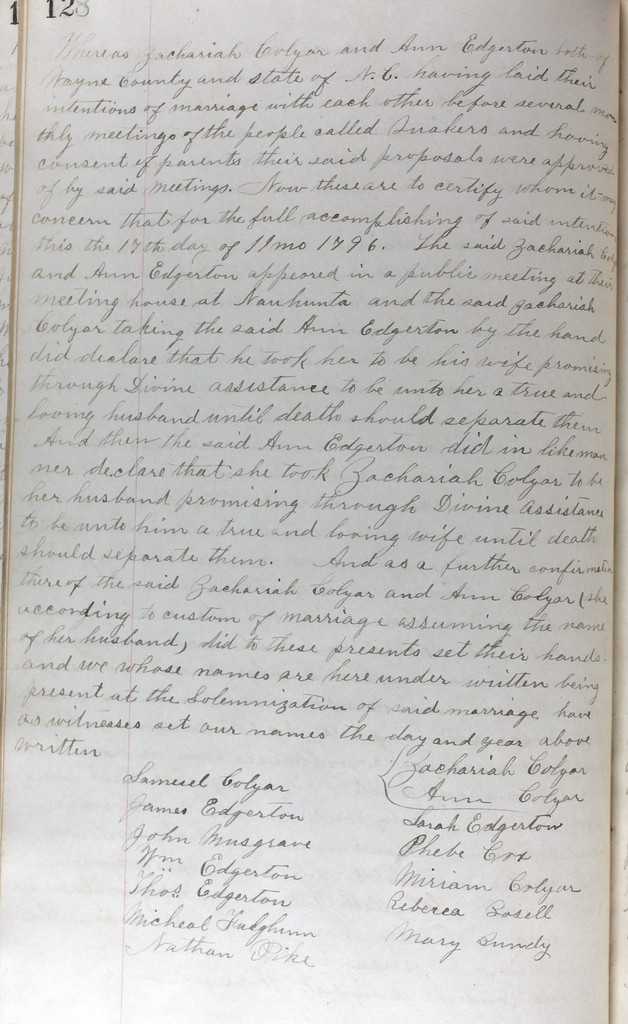 128
Whereas Zachariah Colyar and Ann Edgerton both of
Wayne County and state of N. C. having laid their
intentions of marriage with each other before several mon
thly meetings of the people called Quakers and having
consent of parents their said proposals were approved
of by said meetings. Now these are to certify whom it may
concern that for the full accomplishing of said intention
this the 17th day of 11 mo 1796. The said Zachariah
and Ann Edgerton appeored in a public meeting at their
meeting house at Nauhunta and the said Zachariah
Colyar taking the said Ann Edgerton by the hand
did declare that he took her to be his wife promising
through Divine assistance to be unto her a true and
loving husband until death should separate them
And then the said Ann Edgerton did in like man
ner declare that she took Zachariah Colyar to be
her husband promising through Divine assistance
to be unto him a true and loving wife until death
should separate them. And as a further confirmation
thereof the said Zachariah Colyar and Ann Colyar (she
according to custom of marriage assuming the name
of her husband) did to these presents set their hands.
and we whose names are here under written being
present at the Solemnization of said marriage have
as witnesses set our names the day and year above
written
Zachariah Colyar
Ann Colyar
Samuel Colyar
James Edgerton
John Musgrave
Wm Edgerton
Thos. Edgerton
Micheal Fulghum
Nathan Pike
Sarah Edgerton
Phebe Cox
Miriam Colyar
Rebecca Bosell
Mary Bundy